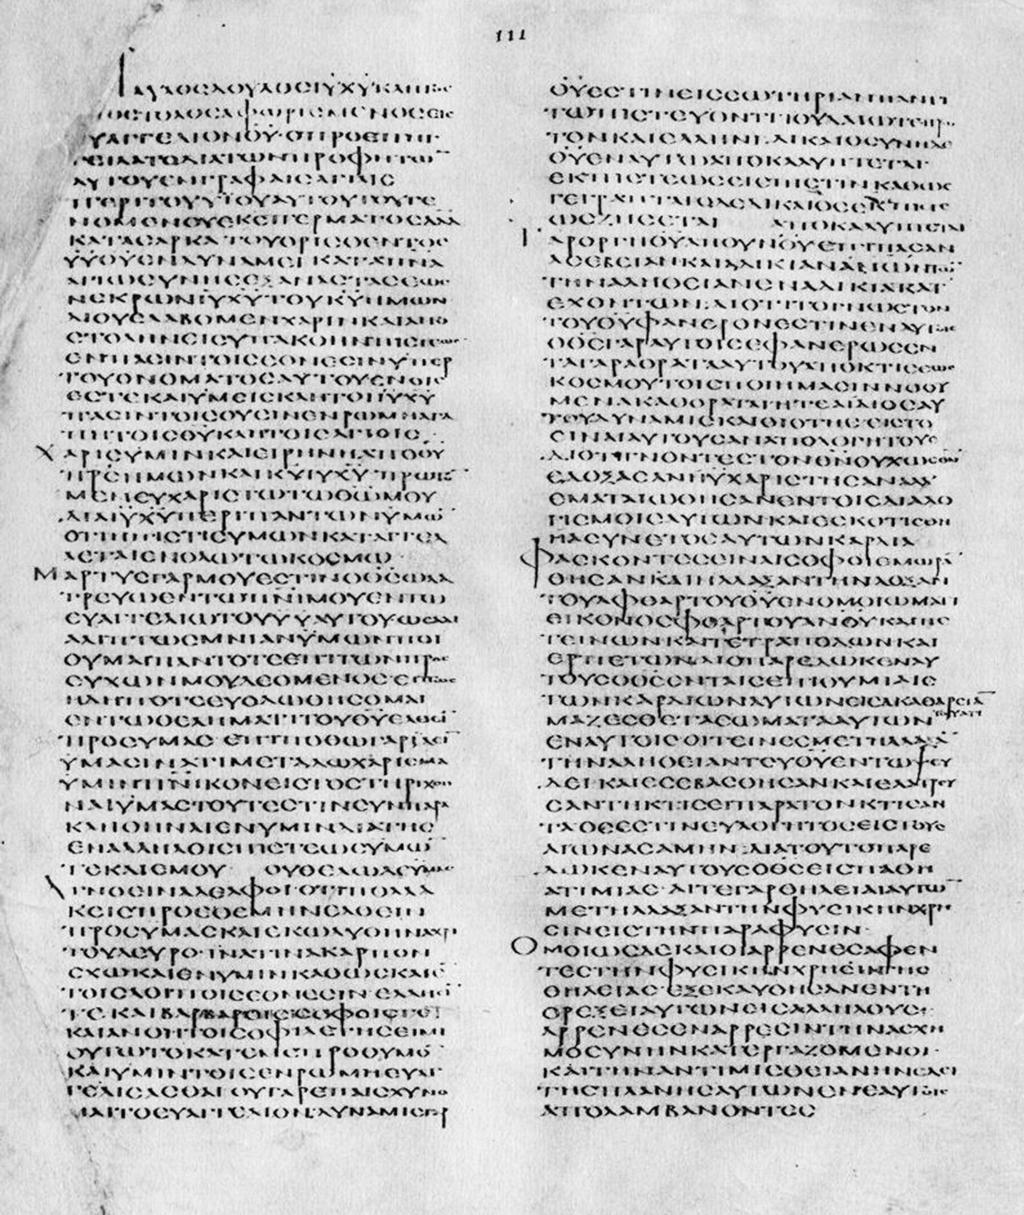 111
ΠΑΥΛΟϹΔΟΥΛΟϹΙΥΧΥΚΛΗΤΟϹ
ΑΠΟϹΤΟΛΟϹΑΦΩΡΙϹΜΕΝΟϹΕΙϹ
ΕΥΑΓΓΕΛΙΟΝΘΥ·ΟΠΡΟΕΠΗΓ
ΓΕΙΛΑΤΟΔΙΑΤΩΝΠΡΟΦΗΤΩ̅
ΑΥΤΟΥΕΝΓΡΑΦΑΙϹΑΓΙΑΙϹ
ΠΕΡΙΤΟΥΥΥΑΥΤΟΥΤΟΥΓΕ
ΝΟΜΕΝΟΥΕΚϹΠΕΡΜΑΤΟϹΔΑΔ
ΚΑΤΑϹΑΡΚΑΤΟΥΟΡΙϹΘΕΝΤΟϹ
ΥΥΘΥΕΝΔΥΝΑΜΕΙΚΑΤΑΠΝΑ
ΑΓΙΩϹΥΝΗϹΕΞΑΝΑϹΤΑϹΕΩϹ
ΝΕΚΡΩΝΙΥΧΥΤΟΥΚΥΗΜΩΝ
ΔΙΟΥΕΛΑΒΟΜΕΝΧΑΡΙΝΚΑΙΑΠΟ
ϹΤΟΛΗΝΕΙϹΥΠΑΚΟΗΝΠΙϹΤΕΩϹ
ΕΝΠΑϹΙΝΤΟΙϹΕΘΝΕϹΙΝΥΠΕΡ
ΤΟΥΟΝΟΜΑΤΟϹΑΥΤΟΥΕΝΟΙϹ
ΕϹΤΕΚΑΙΥΜΕΙϹΚΛΗΤΟΙΙΥΧΥ
ΠΑϹΙΝΤΟΙϹΟΥϹΙΝΕΝΡΩΜΗΑΓΑ
ΠΗΤΟΙϹΘΥΚΛΗΤΟΙϹΑΓΙΟΙϹ
ΧΑΡΙϹΥΜΙΝΚΑΙΕΙΡΗΝΗΑΠΟΘΥ
ΠΡϹΗΜΩΝΚΑΙΚΥΙΥΧΥ·ΠΡΩΤΟ̅
ΜΕΝΕΥΧΑΡΙϹΤΩΤΩΘΩΜΟΥ
ΔΙΑΙΥΧΥΠΕΡΙΠΑΝΤΩΝΥΜΩ̅
ΟΤΙΗΠΙϹΤΙϹΥΜΩΝΚΑΤΑΓΓΕΛ
ΛΕΤΑΙΕΝΟΛΩΤΩΚΟϹΜΩ
ΜΑΡΤΥϹΓΑΡΜΟΥΕϹΤΙΝΟΘϹΩΛΑ
ΤΡΕΥΩΕΝΤΩΠΝΙΜΟΥΕΝΤΩ
ΕΥΑΓΓΕΛΙΩΤΟΥΥΥΑΥΤΟΥΩϹΑΔΙ
ΑΛΙΠΤΩϹΜΝΙΑΝΥΜΩΝΠΟΙ
ΟΥΜΑΙΠΑΝΤΟΤΕΕΠΙΤΩΝΠΡΟϹ
ΕΥΧΩΝΜΟΥΔΕΟΜΕΝΟϹΕΙΠΩϹ
ΗΔΗΠΟΤΕΕΥΟΔΩΘΗϹΟΜΑΙ
ΕΝΤΩΘΕΛΗΜΑΤΙΤΟΥΘΥΕΛΘΕΙ̅
ΠΡΟϹΥΜΑϹ ΕΠΙΠΟΘΩΓΑΡΙΔΕΙ̅
ΥΜΑϹΙΝΑΤΙΜΕΤΑΔΩΧΑΡΙϹΜΑ
ΥΜΙΝΠΝΙΚΟΝΕΙϹΤΟϹΤΗΡΙΧΘΗ
ΝΑΙΥΜΑϹΤΟΥΤΕϹΤΙΝϹΥΝΠΑΡΑ
ΚΛΗΘΗΝΑΙΕΝΥΜΙΝΔΙΑΤΗϹ
ΕΝΑΛΛΗΛΟΙϹΠΙϹΤΕΩϹΥΜΩ̅
ΤΕΚΑΙΕΜΟΥ ΟΥΘΕΛΩΔΕΥΜΑϹ
ΑΓΝΟΕΙΝΑΔΕΛΦΟΙΟΤΙΠΟΛΛΑ
ΚΕΙϹΠΡΟΕΘΕΜΗΝΕΛΘΕΙΝ
ΠΡΟϹΥΜΑϹΚΑΙΕΚΩΛΥΘΗΝΑΧΡΙ
ΤΟΥΔΕΥΡΟ·ΙΝΑΤΙΝΑΚΑΡΠΟΝ
ϹΧΩΚΑΙΕΝΥΜΙΝΚΑΘΩϹΚΑΙΕ̅
ΤΟΙϹΛΟΙΠΟΙϹΕΘΝΕϹΙΝ ΕΛΛΗϹΙ̅
ΤΕΚΑΙΒΑΡΒΑΡΟΙϹϹΟΦΟΙϹΤΕ
ΚΑΙΑΝΟΗΤΟΙϹΟΦΙΛΕΤΗϹΕΙΜΙ
ΟΥΤΩΤΟΚΑΤΕΜΕΠΡΟΘΥΜΟ̅
ΚΑΙΥΜΙΝΤΟΙϹΕΝΡΩΜΗΕΥΑΓ
ΓΕΛΙϹΑϹΘΑΙΟΥΓΑΡΕΠΑΙϹΧΥΝΟ
ΜΑΙΤΟΕΥΑΓΓΕΛΙΟΝ·ΔΥΝΑΜΙϹΓΑΡ
ΘΥΕϹΤΙΝΕΙϹϹΩΤΗΡΙΑΝΠΑΝΤΙ
ΤΩΠΙϹΤΕΥΟΝΤΙΙΟΥΔΑΙΩΤΕΠΡΩ
ΤΟΝΚΑΙΕΛΛΗΝΙ·ΔΙΚΑΙΟϹΥΝΗΔΕ
ΘΥΕΝΑΥΤΩΑΠΟΚΑΛΥΠΤΕΤΑΙ
ΕΚΠΙϹΤΕΩϹΕΙϹΠΙϹΤΙΝΚΑΘΩϹ
ΓΕΓΡΑΠΤΑΙΟΔΕΔΙΚΑΙΟϹΕΚΠΙϹΤΕ
ΩϹΖΗϹΕΤΑΙ ΑΠΟΚΑΛΥΠΤΕΤΑΙ
ΓΑΡΟΡΓΗΘΥΑΠΟΥΝΟΥΕΠΙΠΑϹΑΝ
ΑϹΕΒΕΙΑΝΚΑΙΑΔΙΚΙΑΝΑΝΩΝΤΩ̅
ΤΗΝΑΛΗΘΕΙΑΝΕΝΑΔΙΚΙΑΚΑΤ
ΕΧΟΝΤΩΝ·ΔΙΟΤΙΤΟΓΝΩϹΤΟΝ
ΤΟΥΘΥΦΑΝΕΡΟΝΕϹΤΙΝΕΝΑΥΤΟΙϹ
ΟΘϹΓΑΡΑΥΤΟΙϹΕΦΑΝΕΡΩϹΕΝ
ΤΑΓΑΡΑΟΡΑΤΑΑΥΤΟΥΑΠΟΚΤΙϹΕΩϹ
ΚΟϹΜΟΥΤΟΙϹΠΟΙΗΜΑϹΙΝΝΟΟΥ
ΜΕΝΑΚΑΘΟΡΑΤΑΙΗΤΕΑΙΔΙΟϹΑΥ
ΤΟΥΔΥΝΑΜΙϹΚΑΙΘΙΟΤΗϹΕΙϹΤΟ
ΕΙΝΑΙΑΥΤΟΥϹΑΝΑΠΟΛΟΓΗΤΟΥϹ
ΔΙΟΤΙΓΝΟΝΤΕϹΤΟΝΘΝΟΥΧΩϹΘΝ
ΕΔΟΞΑϹΑΝΗΥΧΑΡΙϹΤΗϹΑΝΑΛΛ
ΕΜΑΤΑΙΩΘΗϹΑΝΕΝΤΟΙϹΔΙΑΛΟ
ΓΙϹΜΟΙϹΑΥΤΩΝΚΑΙΕϹΚΟΤΙϹΘΗ
ΗΑϹΥΝΕΤΟϹΑΥΤΩΝΚΑΡΔΙΑ
ΦΑϹΚΟΝΤΕϹΕΙΝΑΙϹΟΦΟΙΕΜΩΡΑ̅
ΘΗϹΑΝΚΑΙΗΛΛΑΞΑΝΤΗΝΔΟΞΑΝ
ΤΟΥΑΦΘΑΡΤΟΥΘΥΕΝΟΜΟΙΩΜΑΤΙ
ΕΙΚΟΝΟϹΦΘΑΡΤΟΥΑΝΟΥΚΑΙΠΕ
ΤΕΙΝΩΝΚΑΙΤΕΤΡΑΠΟΔΩΝΚΑΙ
ΕΡΠΕΤΩΝΔΙΟΠΑΡΕΔΩΚΕΝΑΥ
ΤΟΥϹΟΘϹΕΝΤΑΙϹΕΠΙΘΥΜΙΑΙϹ
ΤΩΝΚΑΡΔΙΩΝΑΥΤΩΝΕΙϹΑΚΑΘΑΡϹΙΑ̅
ΤΟΥΑΤΙ
ΜΑΖΕϹΘΕΤΑϹΩΜΑΤΑΑΥΤΩΝ
ΕΝΑΥΤΟΙϹΟΙΤΕΙΝΕϹΜΕΤΗΛΛΑΞΑ̅
ΤΗΝΑΛΗΘΕΙΑΝΤΟΥΘΥΕΝΤΩΨΕΥ
ΔΕΙΚΑΙΕϹΕΒΑϹΘΗϹΑΝΚΑΙΕΛΑΤΡΕΥ
ϹΑΝΤΗΚΤΙϹΕΙΠΑΡΑΤΟΝΚΤΙϹΑΝ
ΤΑΟϹΕϹΤΙΝΕΥΛΟΓΗΤΟϹΕΙϹΤΟΥϹ
ΑΙΩΝΑϹΑΜΗΝ·ΔΙΑΤΟΥΤΟΠΑΡΕ
ΔΩΚΕΝΑΥΤΟΥϹΟΘϹΕΙϹΠΑΘΗ
ΑΤΙΜΙΑϹ·ΑΙΤΕΓΑΡΘΗΛΕΙΑΙΑΥΤΩ̅
ΜΕΤΗΛΛΑΞΑΝΤΗΝΦΥϹΙΚΗΝΧΡΗ
ϹΙΝΕΙϹΤΗΝΠΑΡΑΦΥϹΙΝ
ΟΜΟΙΩϹΔΕΚΑΙΟΙΑΡΡΕΝΕϹΑΦΕΝ
ΤΕϹΤΗΝΦΥϹΙΚΗΝΧΡΗϹΙΝΤΗϹ
ΘΗΛΕΙΑϹ·ΕΞΕΚΑΥΘΗϹΑΝΕΝΤΗ
ΟΡΕΞΕΙΑΥΤΩΝΕΙϹΑΛΛΗΛΟΥϹ·
ΑΡΡΕΝΕϹΕΝΑΡΡΕϹΙΝΤΗΝΑϹΧΗ
ΜΟϹΥΝΗΝΚΑΤΕΡΓΑΖΟΜΕΝΟΙ·
ΚΑΙΤΗΝΑΝΤΙΜΙϹΘΕΙΑΝΗΝΕΔΕΙ
ΤΗϹΠΛΑΝΗϹΑΥΤΩΝΕΝΕΑΥΤΟΙϹ
ΑΠΟΛΑΜΒΑΝΟΝΤΕϹ